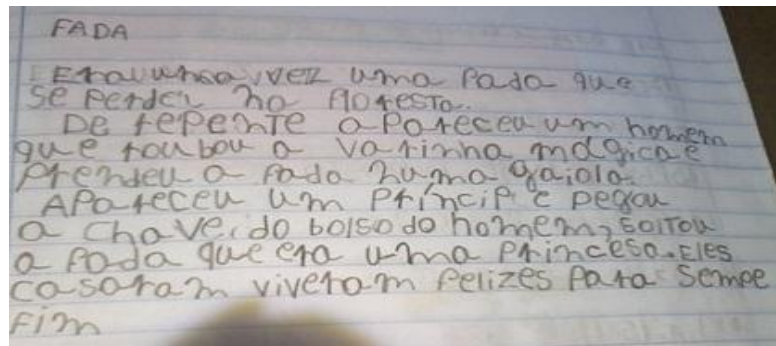 FADA
Era uma vez uma fada que
se perdeu na floresta.
De repente apareceu um homem
que roubou a varinha mágica e
prendeu a fada numa gaiola.
Apareceu um príncipe pegou
a chave, do bolso do homem, soltou
a fada que era uma princesa. Eles
casaram viveram felizes para sempe
Fim